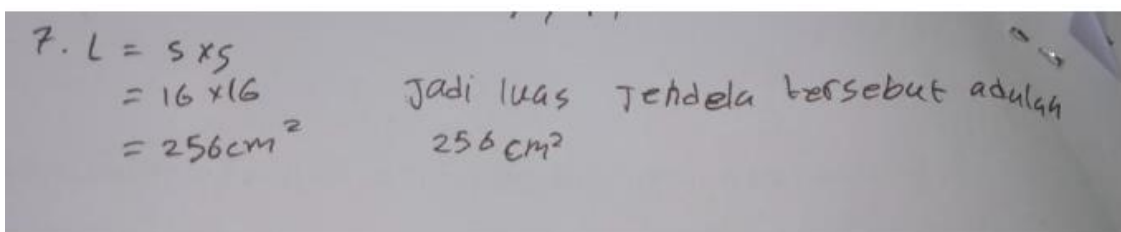 7. L = s x s
= 16 x 16
= 256 cm²
Jadi luas Jendela tersebut adalah
256 cm²